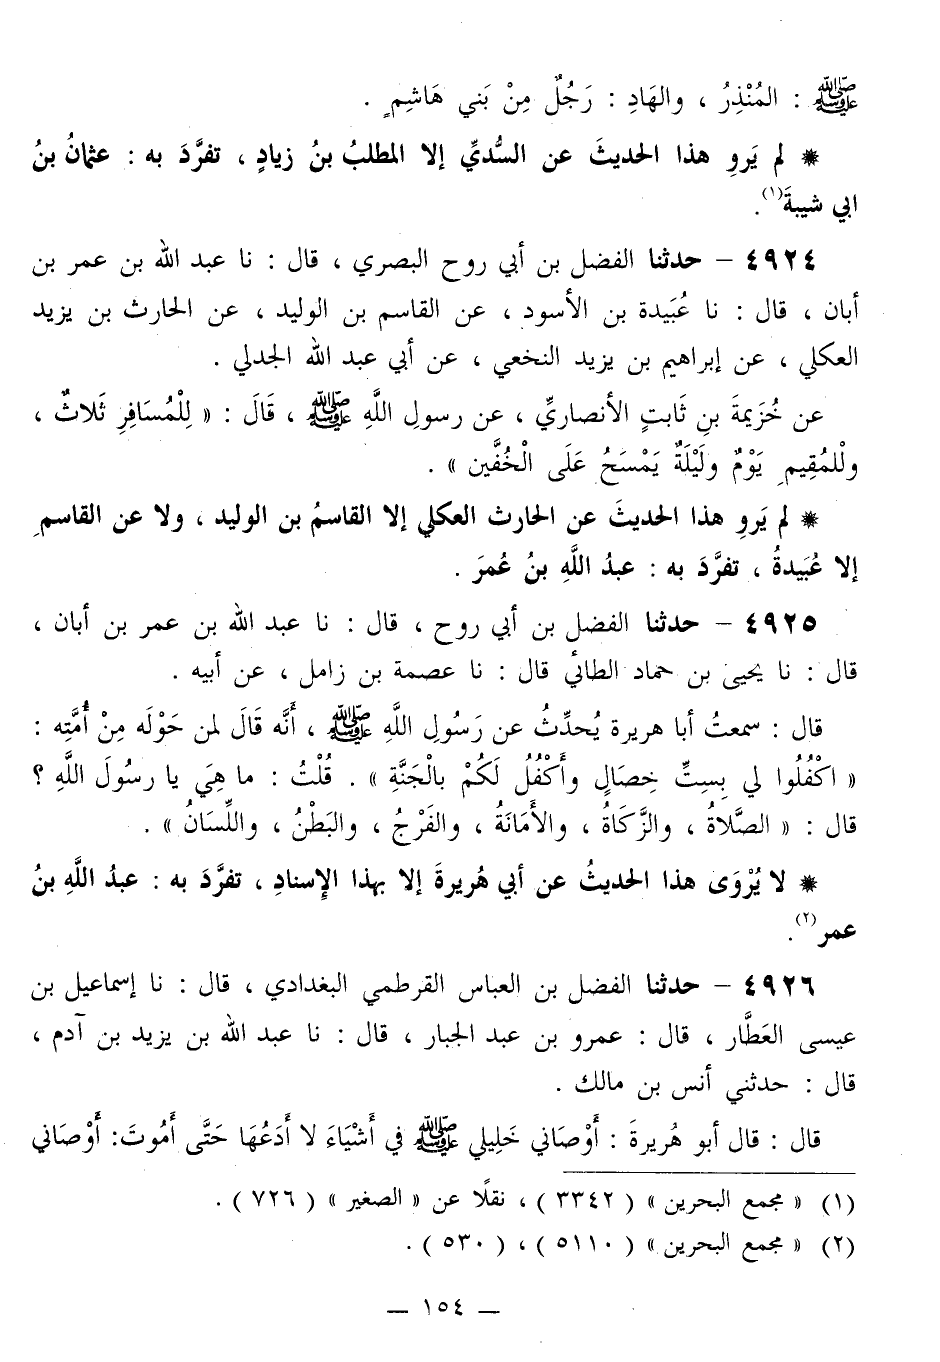 ﷺ : المُنْذِرُ ، والهَادِ : رَجُلٌ مِنْ بَني هَاشِمٍ .
* لم يَروِ هذا الحديثَ عن السُّديِّ إلا المطلبُ بنُ زيادٍ ، تفرَّدَ به : عثمانُ بنُ
ابي شيبةَ(١).
٤٩٢٤ – حدثنا الفضل بن أبي روح البصري ، قال : نا عبد الله بن عمر بن
أبان ، قال : نا عُبَيدة بن الأسود ، عن القاسم بن الوليد ، عن الحارث بن يزيد
العكلي ، عن إبراهيم بن يزيد النخعي ، عن أبي عبد الله الجدلي .
عن خُزَيمةَ بنِ ثَابتٍ الأنصاريِّ ، عن رسولِ اللَّهِ ﷺ ، قَالَ : « لِلْمُسَافِرِ ثَلاثٌ ،
ولْلمُقِيمِ يَوْمٌ ولَيْلَةٌ يَمْسَحُ عَلَى الْخُفَّين » .
* لم يَروِ هذا الحديثَ عن الحارث العكلي إلا القاسمُ بن الوليد ، ولا عن القاسمِ
إلا عُبَيدةُ ، تفرَّدَ به : عبدُ اللَّهِ بنُ عُمرَ .
٤٩٢٥ – حدثنا الفضل بن أبي روح ، قال : نا عبد الله بن عمر بن أبان ،
قال : نا يحيى بن حماد الطائي قال : نا عصمة بن زامل ، عن أبيه .
قال : سمعتُ أبا هريرة يُحدِّثُ عن رَسُولِ اللَّهِ ﷺ ، أَنَّه قَالَ لمن حَوْلَه مِنْ أُمَّتِه :
« اكْفُلُوا لي بِسِتِّ خِصَالٍ وأَكْفُلُ لَكُمْ بالْجَنَّةِ » . قُلْتُ : ما هِيَ يا رسُولَ اللَّهِ ؟
قال : « الصَّلاةُ ، والزَّكَاةُ ، والأَمَانَةُ ، والفَرْجُ ، والبَطْنُ ، واللِّسَانُ » .
* لا يُرْوَى هذا الحديثُ عن أبي هُريرةَ إلا بهذا الإسنادِ ، تفرَّدَ به : عبدُ اللَّهِ بنُ
عمر(٢).
٤٩٢٦ – حدثنا الفضل بن العباس القرطمي البغدادي ، قال : نا إسماعيل بن
عيسى العَطَّار ، قال : عمرو بن عبد الجبار ، قال : نا عبد الله بن يزيد بن آدم ،
قال : حدثني أنس بن مالك .
قال : قال أبو هُريرةَ : أَوْصَاني خَلِيلي ﷺ في أَشْيَاءَ لا أَدَعُهَا حَتَّى أَمُوتَ: أَوْصَاني
(١) « مجمع البحرين » ( ٣٣٤٢ ) ، نقلًا عن « الصغير » ( ٧٢٦ ) .
(٢) « مجمع البحرين » ( ٥١١٠ ) ، ( ٥٣٠ ) .
— ١٥٤ —